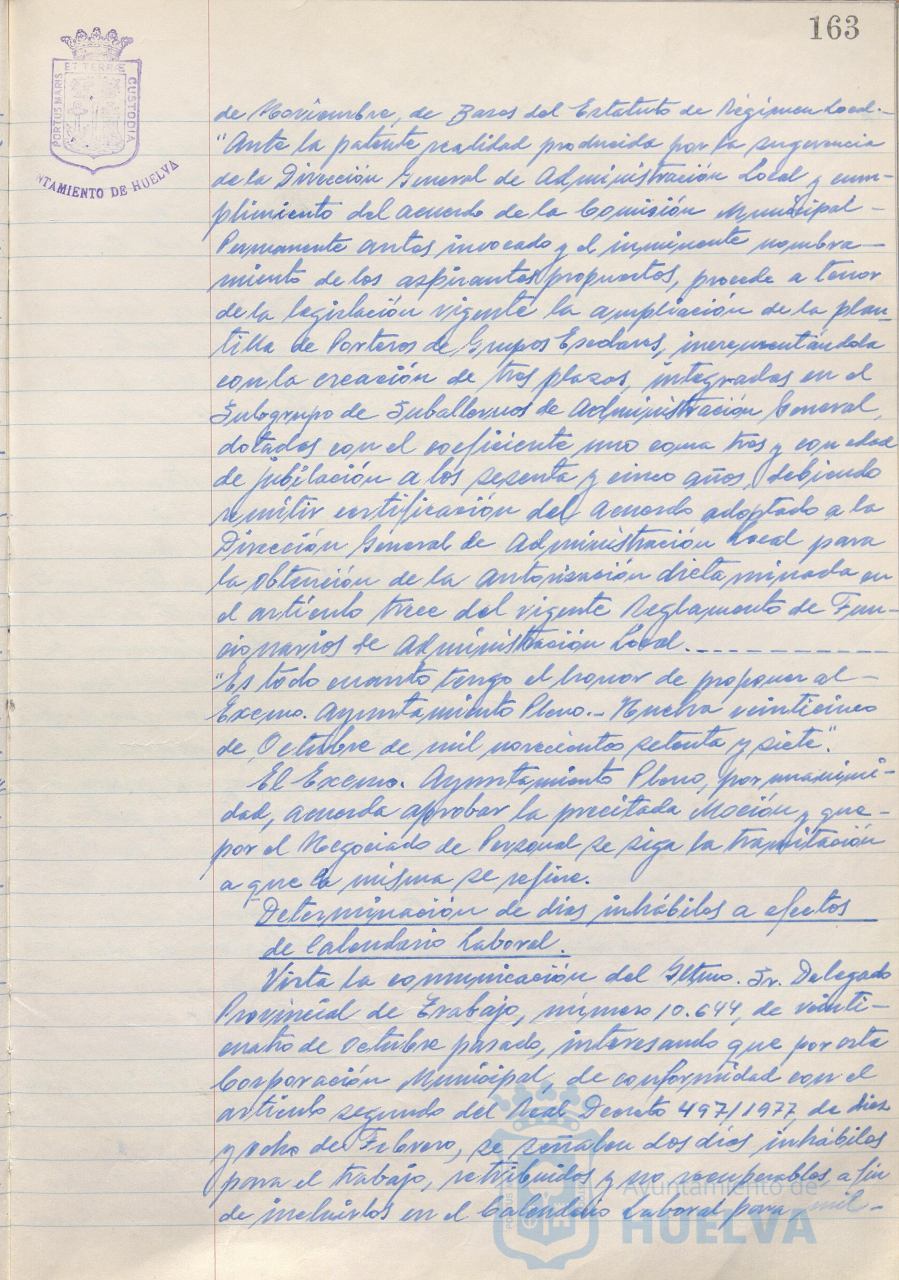 163
PORTUS MARIS ET TERRÆ CUSTODIA
NTAMIENTO DE HUELVA
de Noviembre, de Bases del Estatuto de Régimen Local.-
"Ante la patente realidad producida por la sugerencia
de la Dirección General de Administración Local y cum-
plimiento del acuerdo de la Comisión Municipal -
Permanente antes invocado y el inminente nombra-
miento de los aspirantes propuestos, procede a tenor
de la legislación vigente la ampliación de la plan-
tilla de Porteros de Grupos Escolares, incrementándola
con la creación de tres plazas, integradas en el
Subgrupo de Subalternos de Administración General,
dotadas con el coeficiente uno coma tres y con edad
de jubilación a los sesenta y cinco años, debiendo
remitir certificación del acuerdo adoptado a la
Dirección General de Administración Local para
la obtención de la autorización dictaminada en
el artículo trece del vigente Reglamento de Fun-
cionarios de Administración Local.----------
"Es todo cuanto tengo el honor de proponer al -
Excmo. Ayuntamiento Pleno.- Huelva veinticinco
de Octubre de mil novecientos setenta y siete".
El Excmo. Ayuntamiento Pleno, por unanimi-
dad, acuerda aprobar la precitada Moción y que -
por el Negociado de Personal se siga la tramitación
a que la misma se refiere.
Determinación de días inhábiles a efectos
de Calendario Laboral.
Vista la comunicación del Iltmo. Sr. Delegado
Provincial de Trabajo, número 10.644, de veinti-
cuatro de Octubre pasado, interesando que por esta
Corporación Municipal, de conformidad con el
artículo segundo del Real Decreto 497/1977, de diez
y ocho de Febrero, se señalen dos días inhábiles
para el trabajo, retribuidos y no recuperables, a fin
de incluirlos en el Calendario Laboral para mil -
Ayuntamiento de
HUELVA